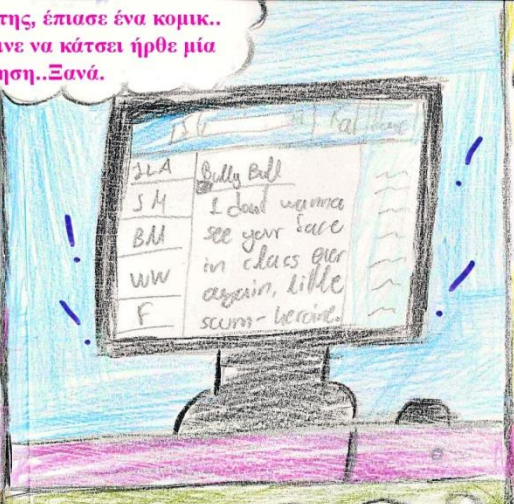 της, έπιασε ένα κομικ..
ινε να κάτσει ήρθε μία
ηση..Ξανά.
JLA
SM
BM
WW
F
Bully Bull
I dont wanna
see your face
in class ever
again, little
scum-heroine.